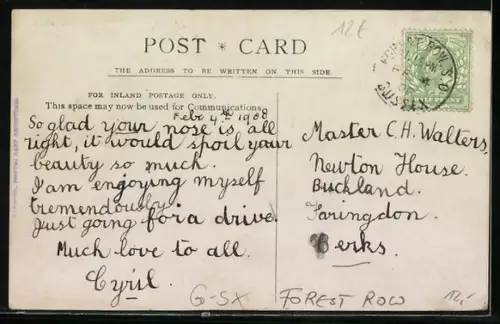 12€
POST * CARD
THE ADDRESS TO BE WRITTEN ON THIS SIDE
FOR INLAND POSTAGE ONLY.
This space may now be used for Communications.
Feb 4th 1908
So glad your nose is all
right, it would spoil your
beauty so much.
I am engoying myself
tremendously.
Just going for a drive.
Much love to all.
Cyril.
FOREST ROW S.O
SUSSEX
Master C.H. Walters,
Newton House.
Buckland.
Faringdon.
Berks.
G-SX
FOREST ROW
12,-